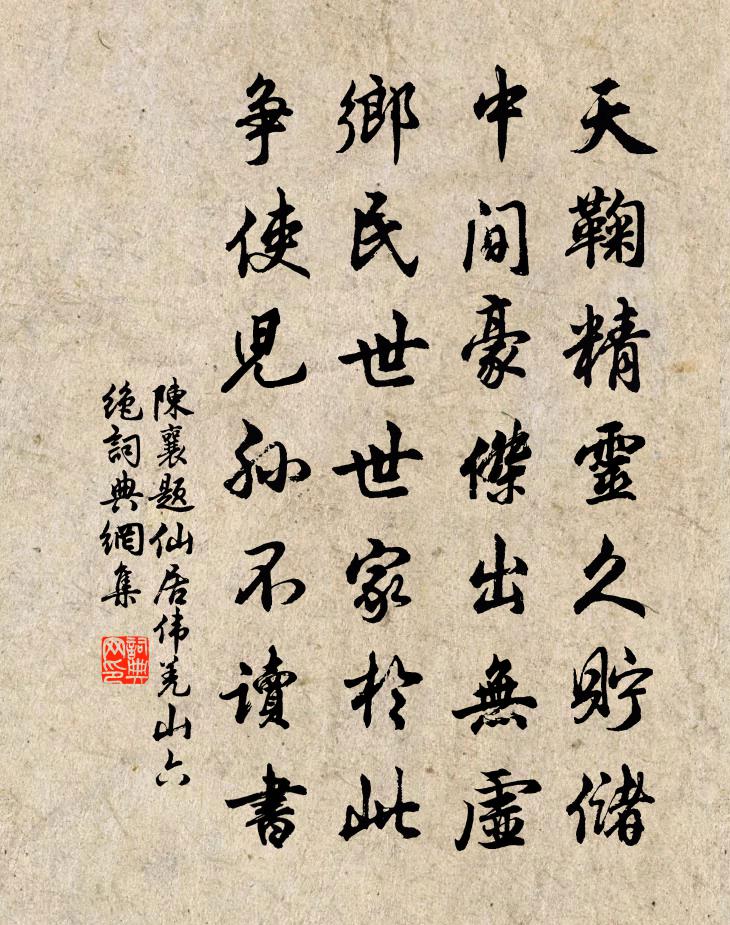 天鞠精靈久貯儲
中間豪傑出無虛
鄉民世世家於此
爭使兒孫不讀書
陳襄題仙居伟羌山六
絶詞典網集
詞典
网印